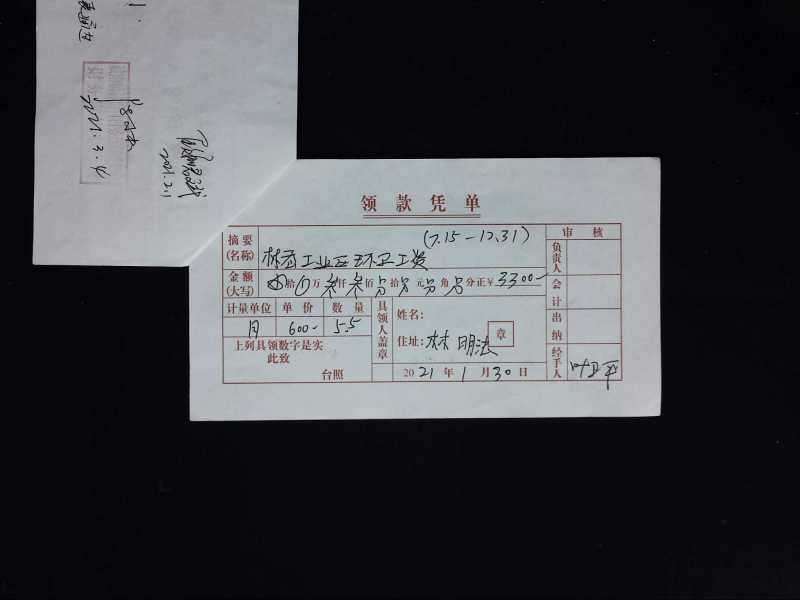 2021.3.4
2021.2.1
领款凭单
摘要(名称) (7.15-12.31)
工业区环卫工资
金额(大写) 拾 万叁仟叁佰 拾 元 角 分正¥3300-
计量单位 单价 数量
月 600- 5.5
上列具领数字是实
此致
台照
具领人盖章
姓名:
住址: 林明法 章
2021年1月30日
审核
负责人
会计
出纳
经手人 叶卫平